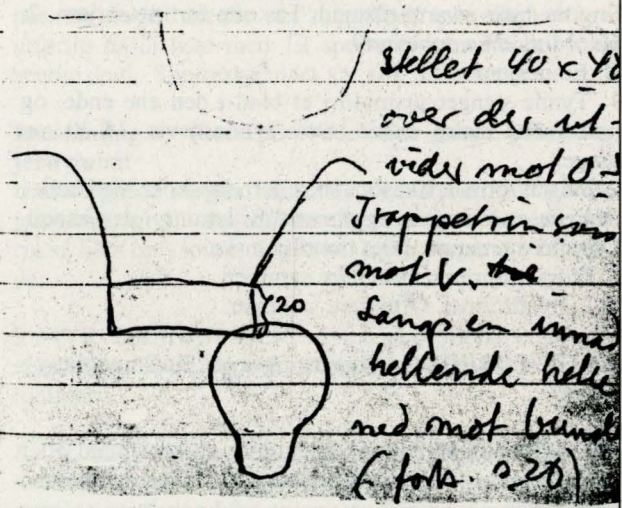 skellet 40 x 40
over des ut-
vider mot O-
Trappetrinsom
mot V.
Langs en inna
hellende helle
ned mot bund
(forts. s 20)
20